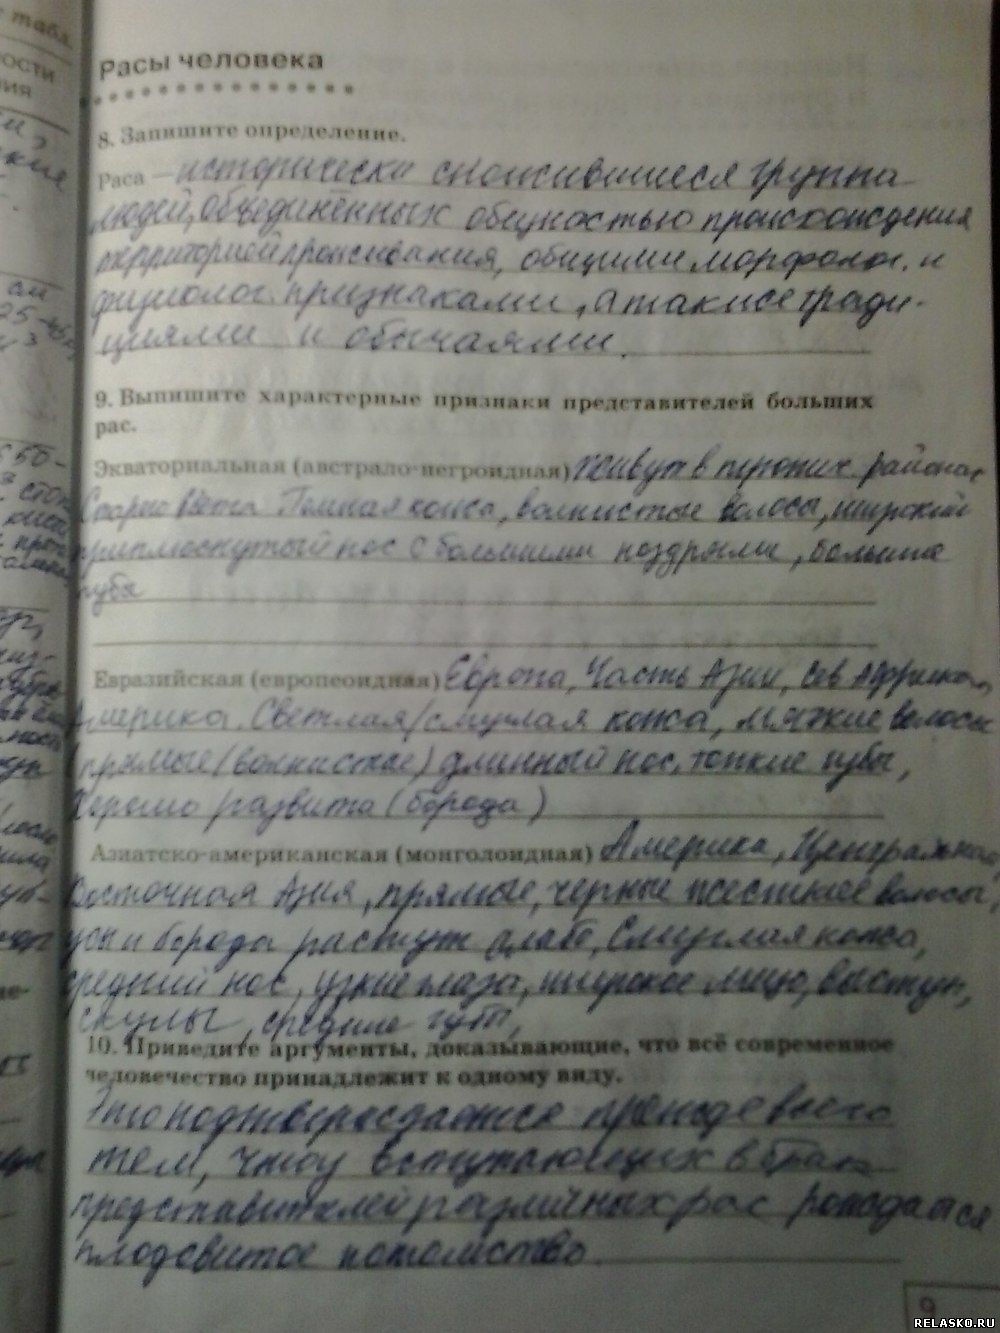 табл.
Расы человека
8. Запишите определение.
Раса — исторически сложившиеся группа
людей, объединённых общностью происхождения
территорией проживания, общими морфолог. и
физиолог. признаками, а также тради-
циями и обычаями.
9. Выпишите характерные признаки представителей больших
рас.
Экваториальная (австрало-негроидная) живут в районах
Старого Света. Темная кожа, волнистые волосы, широкий
приплюснутый нос с большими ноздрями, большие
губы
Евразийская (европеоидная) Европа, Часть Азии, Сев Африка,
Америка. Светлая/смуглая кожа, мягкие волосы
прямые/(волнистые) длинный нос, тонкие губы,
Хорошо развита (борода)
Азиатско-американская (монголоидная) Америка, Центральная,
Восточная Азия, прямые, черные жесткие волосы,
усы и борода растут слабо, Смуглая кожа,
средний нос, узкие глаза, широкое лицо, выступ,
скулы, средние губы,
10. Приведите аргументы, доказывающие, что всё современное
человечество принадлежит к одному виду.
Это подтверждается прежде всего
тем, что у вступающих в брак
представителей различных рас рождается
плодовитое потомство
9
RELASKO.RU